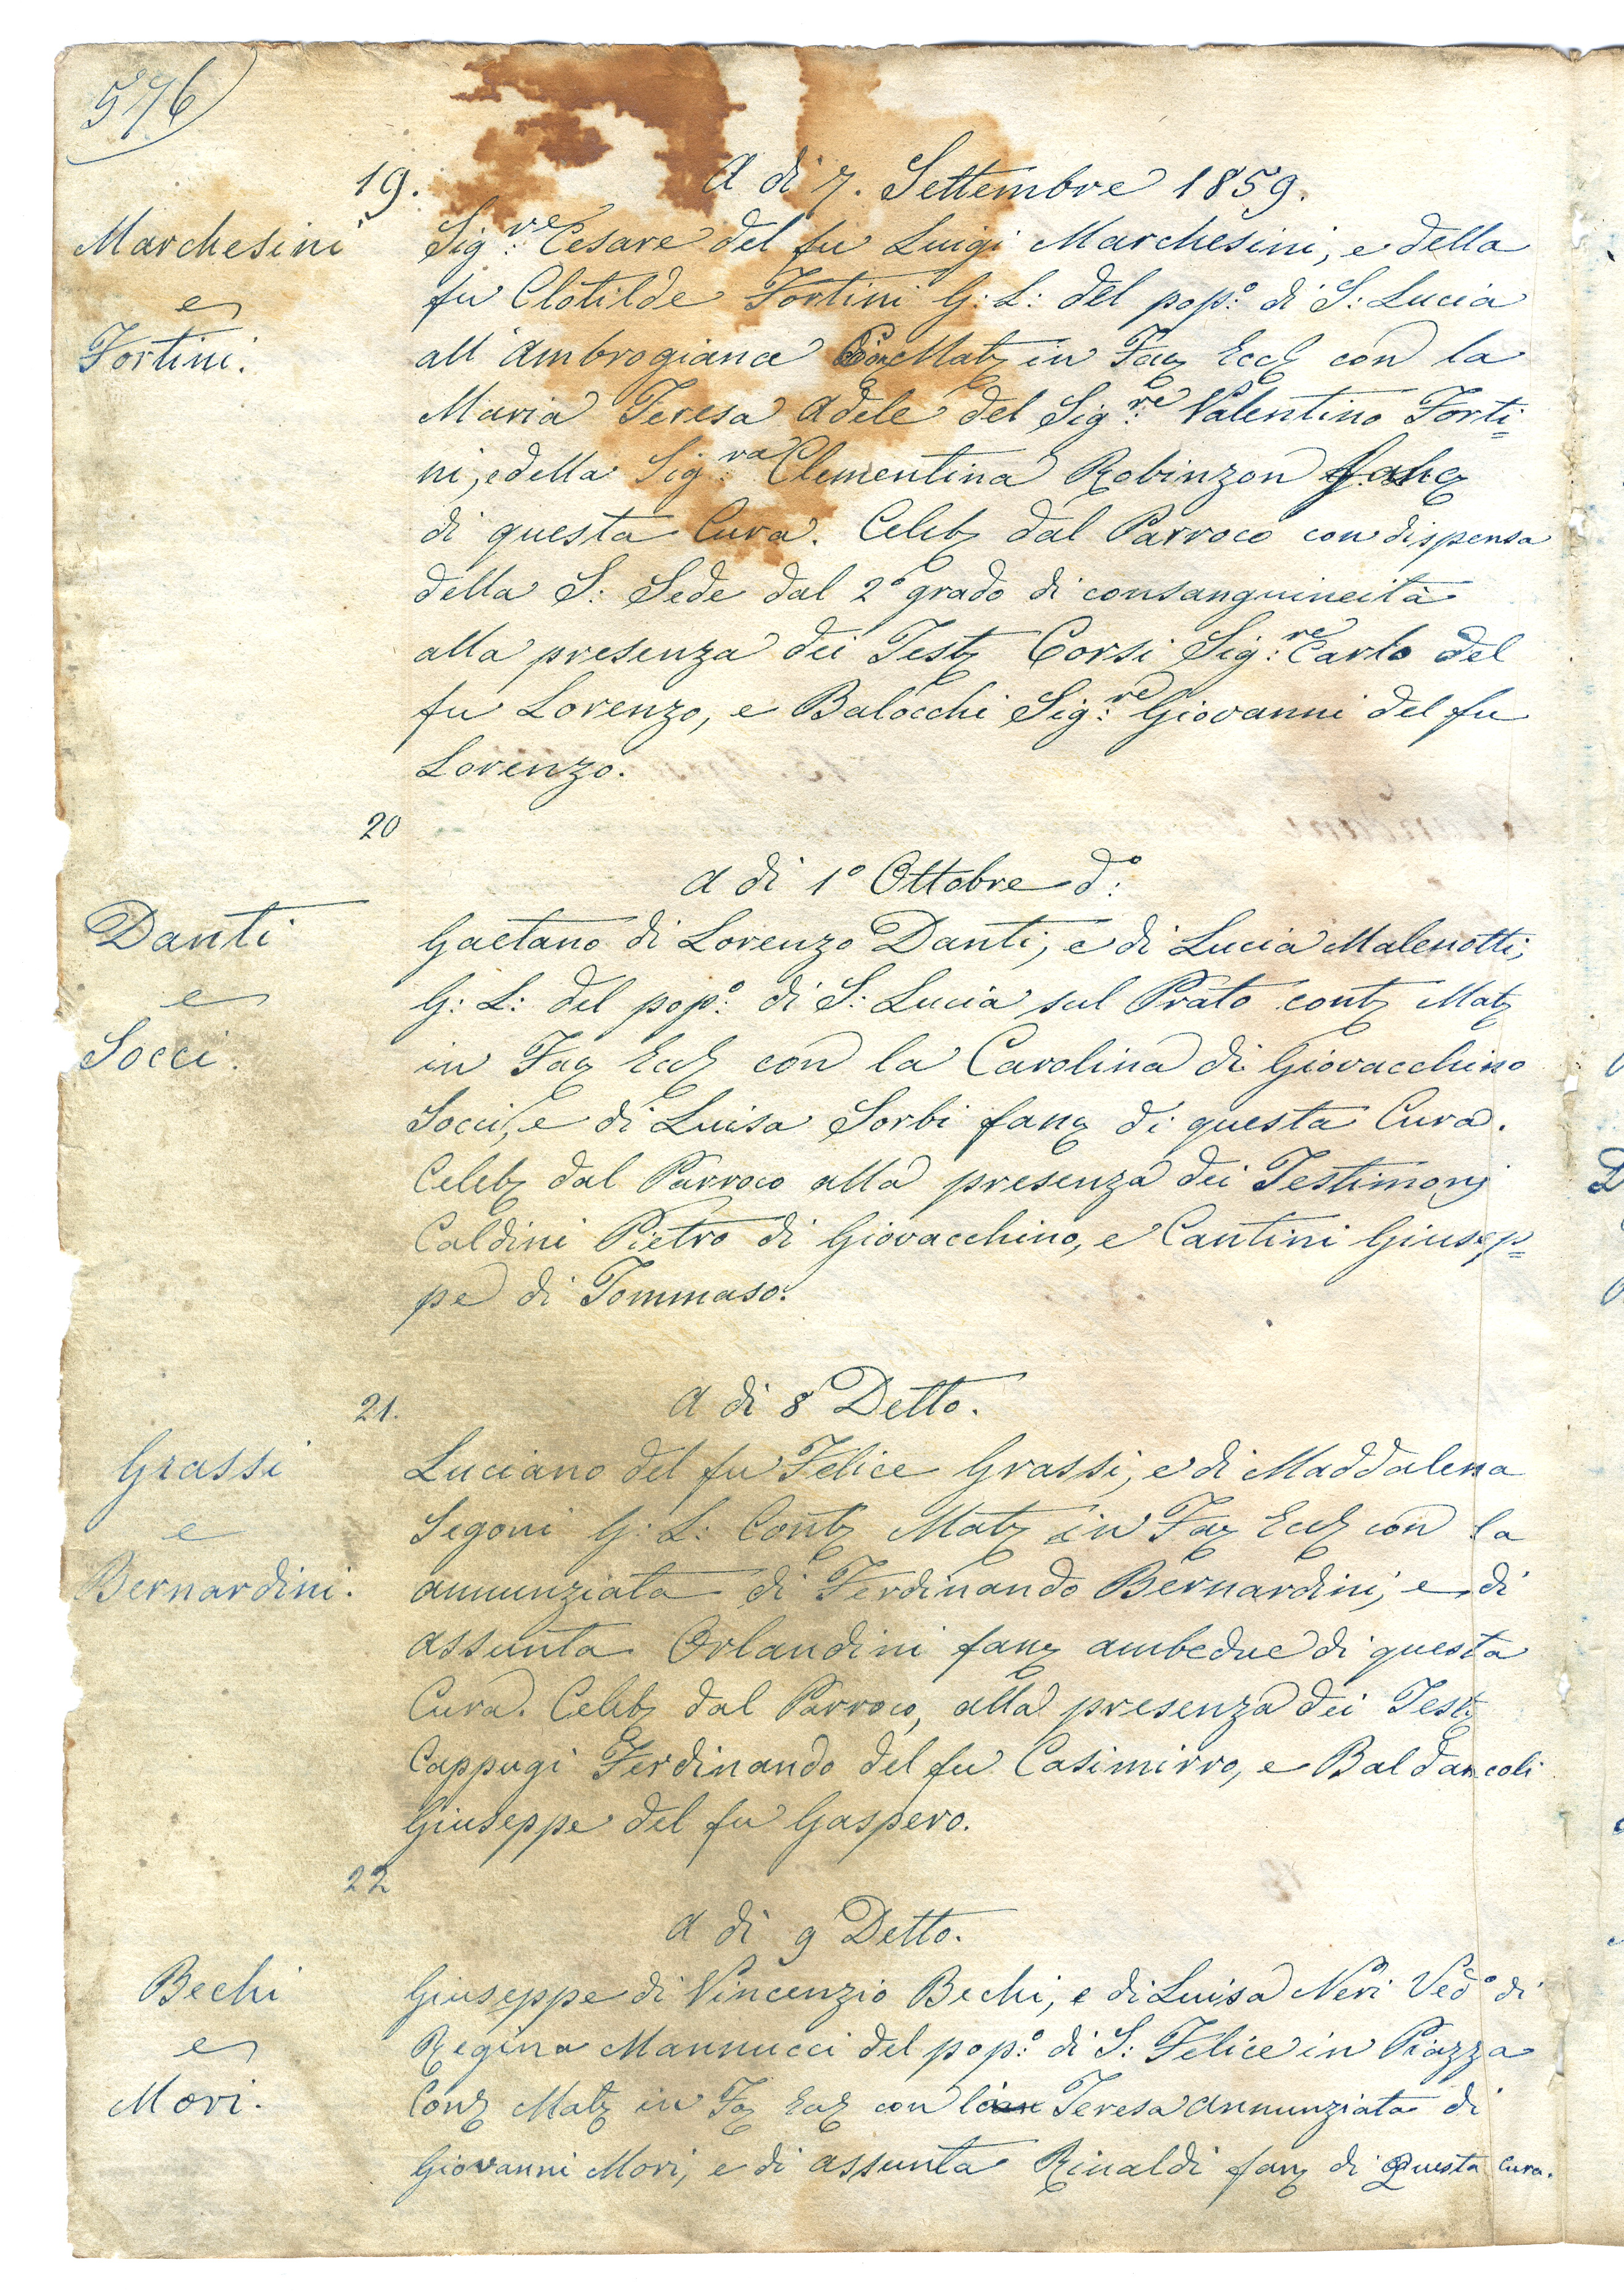 576
19.
A di 7. Settembre 1859.
Marchesini
e
Fortini.
Sig.re Cesare del fu Luigi Marchesini, e della
fu Clotilde Fortini G: L: del pop:o di S: Lucia
all'Ambrogiana Con Matz in Faz Eccz con la
Maria Teresa Adele del Sig:re Valentino Forti=
ni, e della Sig:ra Clementina Robinzon fanz
di questa Cura. Celebz dal Parroco con dispensa
della S: Sede dal 2o grado di consanguineità
alla presenza dei Testz Corsi Sig:re Carlo del
fu Lorenzo, e Balocchi Sig:re Giovanni del fu
Lorenzo.
20
A di 1o Ottobre d:o
Danti
e
Socci.
Gaetano di Lorenzo Danti, e di Lucia Malenotti,
G: L: del pop:o di S: Lucia sul Prato contz Matz
in Faz Eccz con la Carolina di Giovacchino
Socci, e di Luisa Sorbi fanz di questa Cura.
Celebz dal Parroco alla presenza dei Testimonj
Caldini Pietro di Giovacchino, e Cantini Giusep=
pe di Tommaso.
21.
A di 8 Detto.
Grassi
e
Bernardini.
Luciano del fu Felice Grassi, e di Maddalena
Segoni G: L: Contz Matz in Faz Eccz con la
Annunziata di Ferdinando Bernardini, e di
Assunta Orlandini fanz ambedue di questa
Cura. Celebz dal Parroco, alla presenza dei Testz
Cappugi Ferdinando del fu Casimirro, e Baldancoli
Giuseppe del fu Gaspero.
22
A di 9 Detto.
Bechi
e
Mori.
Giuseppe di Vincenzio Bechi, e di Luisa Neri Ved:o di
Regina Mannucci del pop:o di S: Felice in Piazza
Conz Matz in Faz Eccz con la Teresa Annunziata di
Giovanni Mori, e di Assunta Rinaldi fanz di Questa Cura.